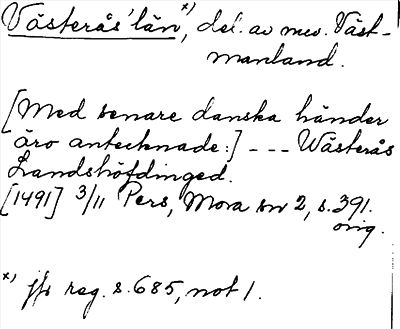 Västerås' län *), del. av nuv. Väst-
manland.
[Med senare danska händer
äro antecknade:] --- Wästerås
Landshöfdinged.
[1491] 3/11 Pers, Mora sn 2, s. 391.
orig.
*) jfr reg. s. 685, not 1.